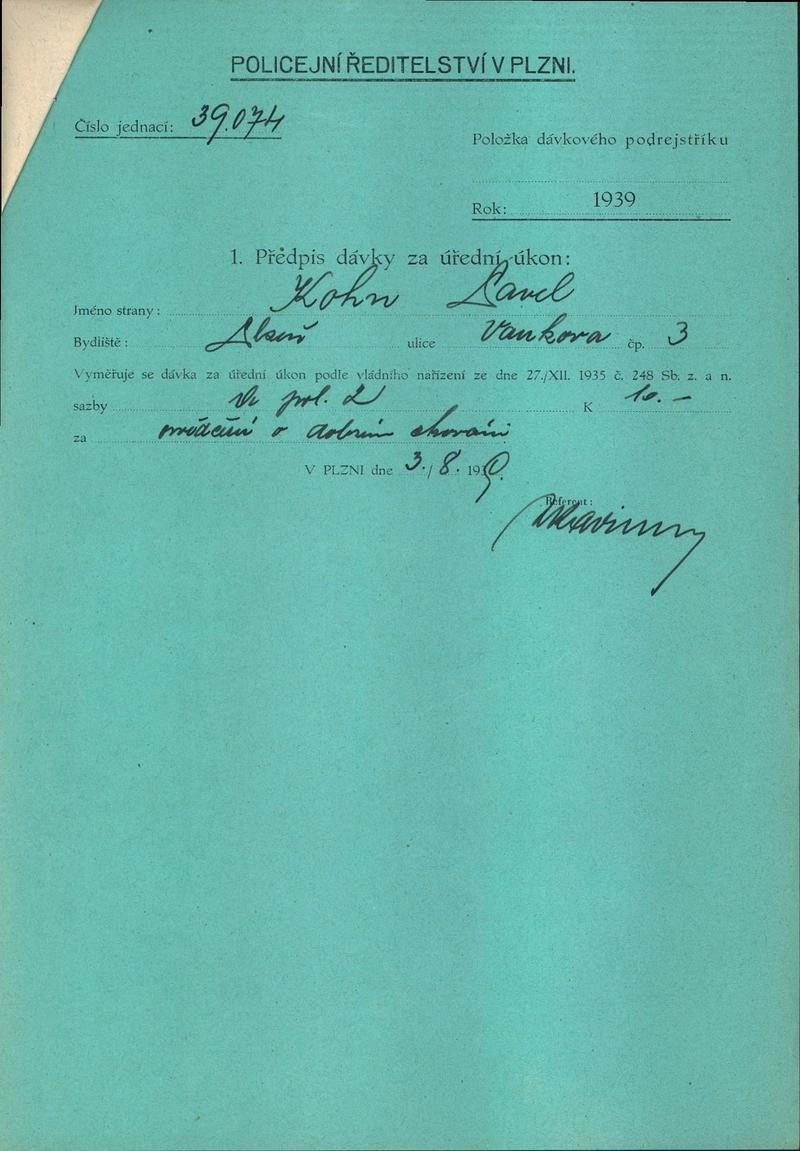 POLICEJNÍ ŘEDITELSTVÍ V PLZNI.
Číslo jednací: 39.074
Položka dávkového podrejstříku
Rok: 1939
1. Předpis dávky za úřední úkon:
Jméno strany: Kohn Pavel
Bydliště: Plzeň ulice Vaňkova čp. 3
Vyměřuje se dávka za úřední úkon podle vládního nařízení ze dne 27./XII. 1935 č. 248 Sb. z. a n.
sazby pol. 2 K 10.-
za osvědčení o dobrém chování
V PLZNI dne 3./8. 1939.
Referent: